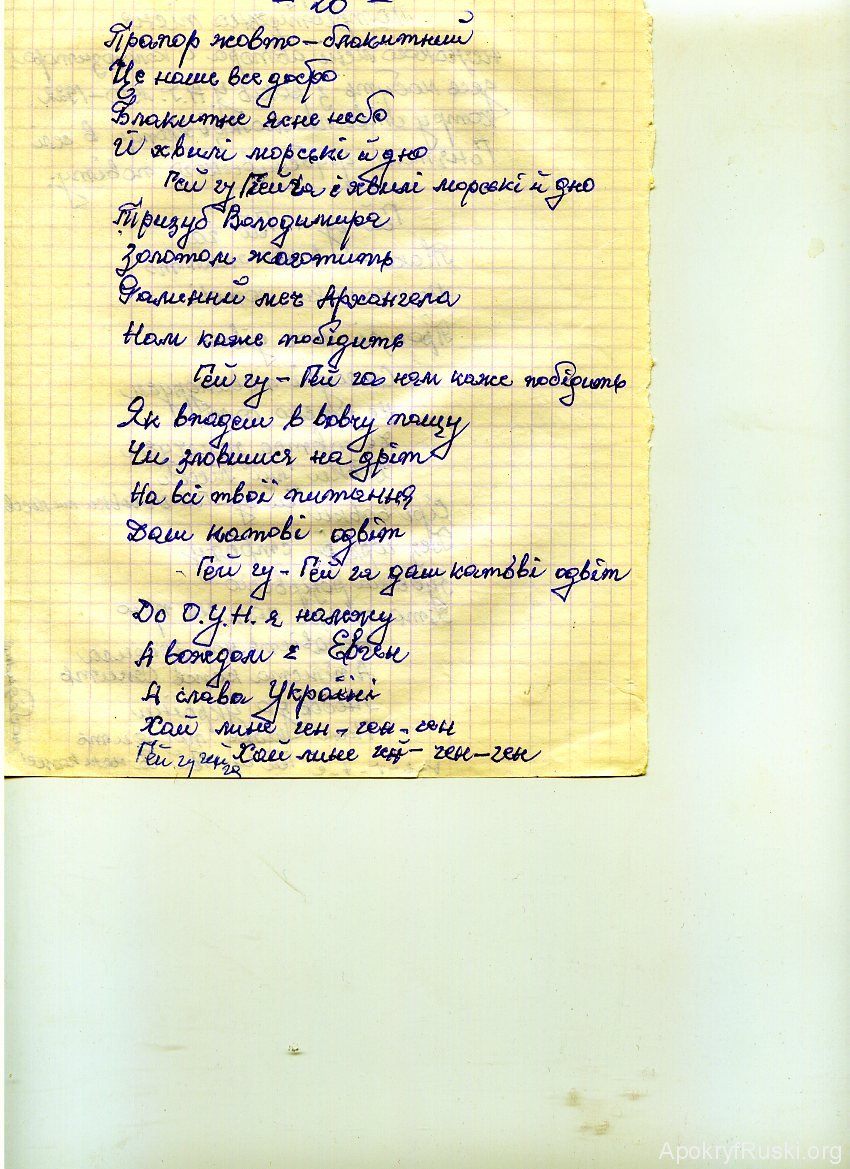 - 20 -
Прапор жовто-блакитний
Це наше все добро
Блакитне ясне небо
Й хвилі морські й дно
Гей гу Гей га і хвилі морські й дно
Тризуб Володимира
Золотом жоготить
Фалинний меч Архангела
Нам каже побідить
Гей гу - Гей га нам каже побідить
Як впадеш в вовчу пащу
Чи зловишися на дріт
На всі твої питання
Даш катові одвіт
Гей гу - Гей га даш катові одвіт
До О.У.Н. я належу
А вождом є Евген
А слава Україні
Хай лине ген-ген-ген
Гей гу гей га Хай лине ген-ген-ген
ApokryfRuski.org